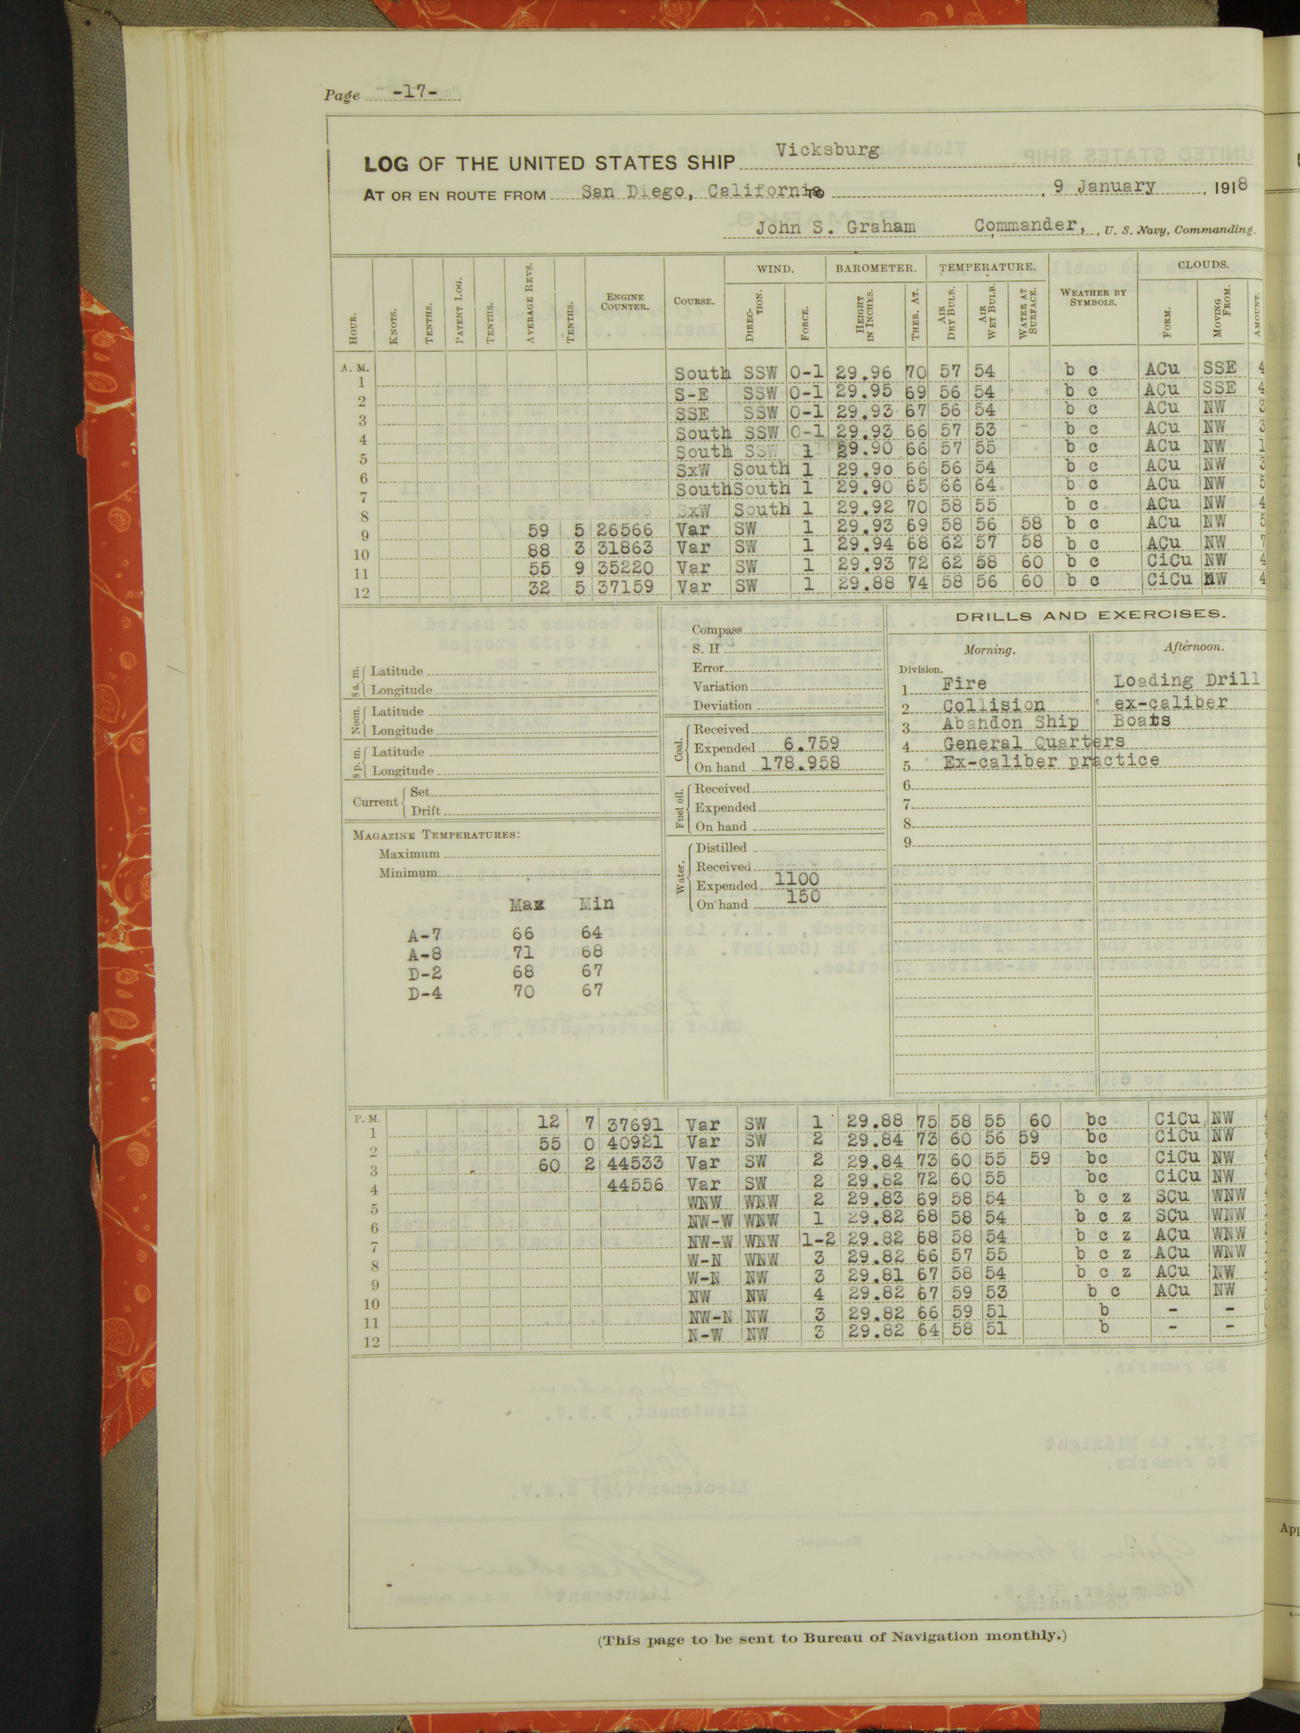 Page -17-
LOG OF THE UNITED STATES SHIP Vicksburg
AT OR EN ROUTE FROM San Diego, California TO , 9 January , 1918
John S. Graham Commander, , U. S. Navy, Commanding.
WIND. BAROMETER. TEMPERATURE. CLOUDS.
HOUR. KNOTS. TENTHS. PATENT LOG. TENTHS. AVERAGE REVS. TENTHS. ENGINE COUNTER. COURSE. DIRECTION. FORCE. HEIGHT IN INCHES. THER. AT. AIR DRY BULB. AIR WET BULB. WATER AT SURFACE. WEATHER BY SYMBOLS. FORM. MOVING FROM. AMOUNT.
A. M.
1 South SSW 0-1 29.96 70 57 54 b c ACu SSE 4
2 S-E SSW 0-1 29.95 69 56 54 b c ACu SSE 4
3 SSE SSW 0-1 29.93 67 56 54 b c ACu NW 3
4 South SSW 0-1 29.93 66 57 53 b c ACu NW 3
5 South SSW 1 29.90 66 57 55 b c ACu NW 1
6 SxW South 1 29.90 66 56 54 b c ACu NW 3
7 South South 1 29.90 65 66 64 b c ACu NW 5
8 SxW South 1 29.92 70 58 55 b c ACu NW 4
9 59 5 26566 Var SW 1 29.93 69 58 56 58 b c ACu NW 5
10 88 3 31863 Var SW 1 29.94 68 62 57 58 b c ACu NW 7
11 55 9 35220 Var SW 1 29.93 72 62 58 60 b c CiCu NW 4
12 32 5 37159 Var SW 1 29.88 74 58 56 60 b c CiCu NW 4
8 a. m. Latitude
Longitude
Noon. Latitude
Longitude
8 p. m. Latitude
Longitude
Current Set
Drift
MAGAZINE TEMPERATURES:
Maximum
Minimum
Max Min
A-7 66 64
A-8 71 68
D-2 68 67
D-4 70 67
Compass
S. H
Error
Variation
Deviation
Coal. Received
Expended 6.759
On hand 178.958
Fuel oil. Received
Expended
On hand
Water. Distilled
Received
Expended 1100
On hand 150
DRILLS AND EXERCISES.
Morning. Afternoon.
Division.
1 Fire Loading Drill
2 Collision ex-caliber
3 Abandon Ship Boats
4 General Quarters
5 Ex-caliber practice
6
7
8
9
P. M.
1 12 7 37691 Var SW 1 29.88 75 58 55 60 bc CiCu NW
2 55 0 40921 Var SW 2 29.84 73 60 56 59 bc CiCu NW
3 60 2 44533 Var SW 2 29.84 73 60 55 59 bc CiCu NW
4 44556 Var SW 2 29.82 72 60 55 bc CiCu NW
5 WNW WNW 2 29.83 69 58 54 b c z SCu WNW
6 NW-W WNW 1 29.82 68 58 54 b c z SCu WNW
7 NW-W WNW 1-2 29.82 68 58 54 b c z ACu WNW
8 W-N WNW 3 29.82 66 57 55 b c z ACu WNW
9 W-N NW 3 29.81 67 58 54 b c z ACu NW
10 NW NW 4 29.82 67 59 53 b c ACu NW
11 NW-N NW 3 29.82 66 59 51 b - -
12 N-W NW 3 29.82 64 58 51 b - -
(This page to be sent to Bureau of Navigation monthly.)
App